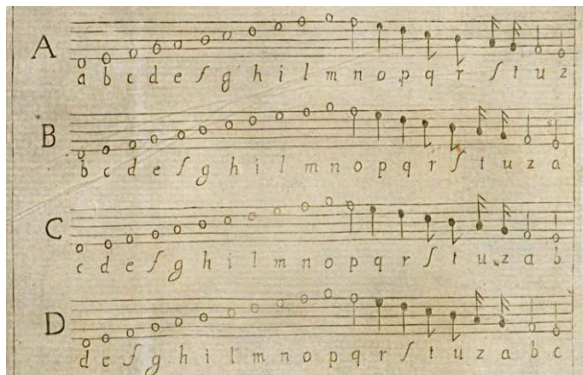 A a b c d e f g h i l m n o p q r ſ t u z
B b c d e f g h i l m n o p q r ſ t u z a
C c d e f g h i l m n o p q r ſ t u z a b
D d e f g h i l m n o p q r ſ t u z a b c